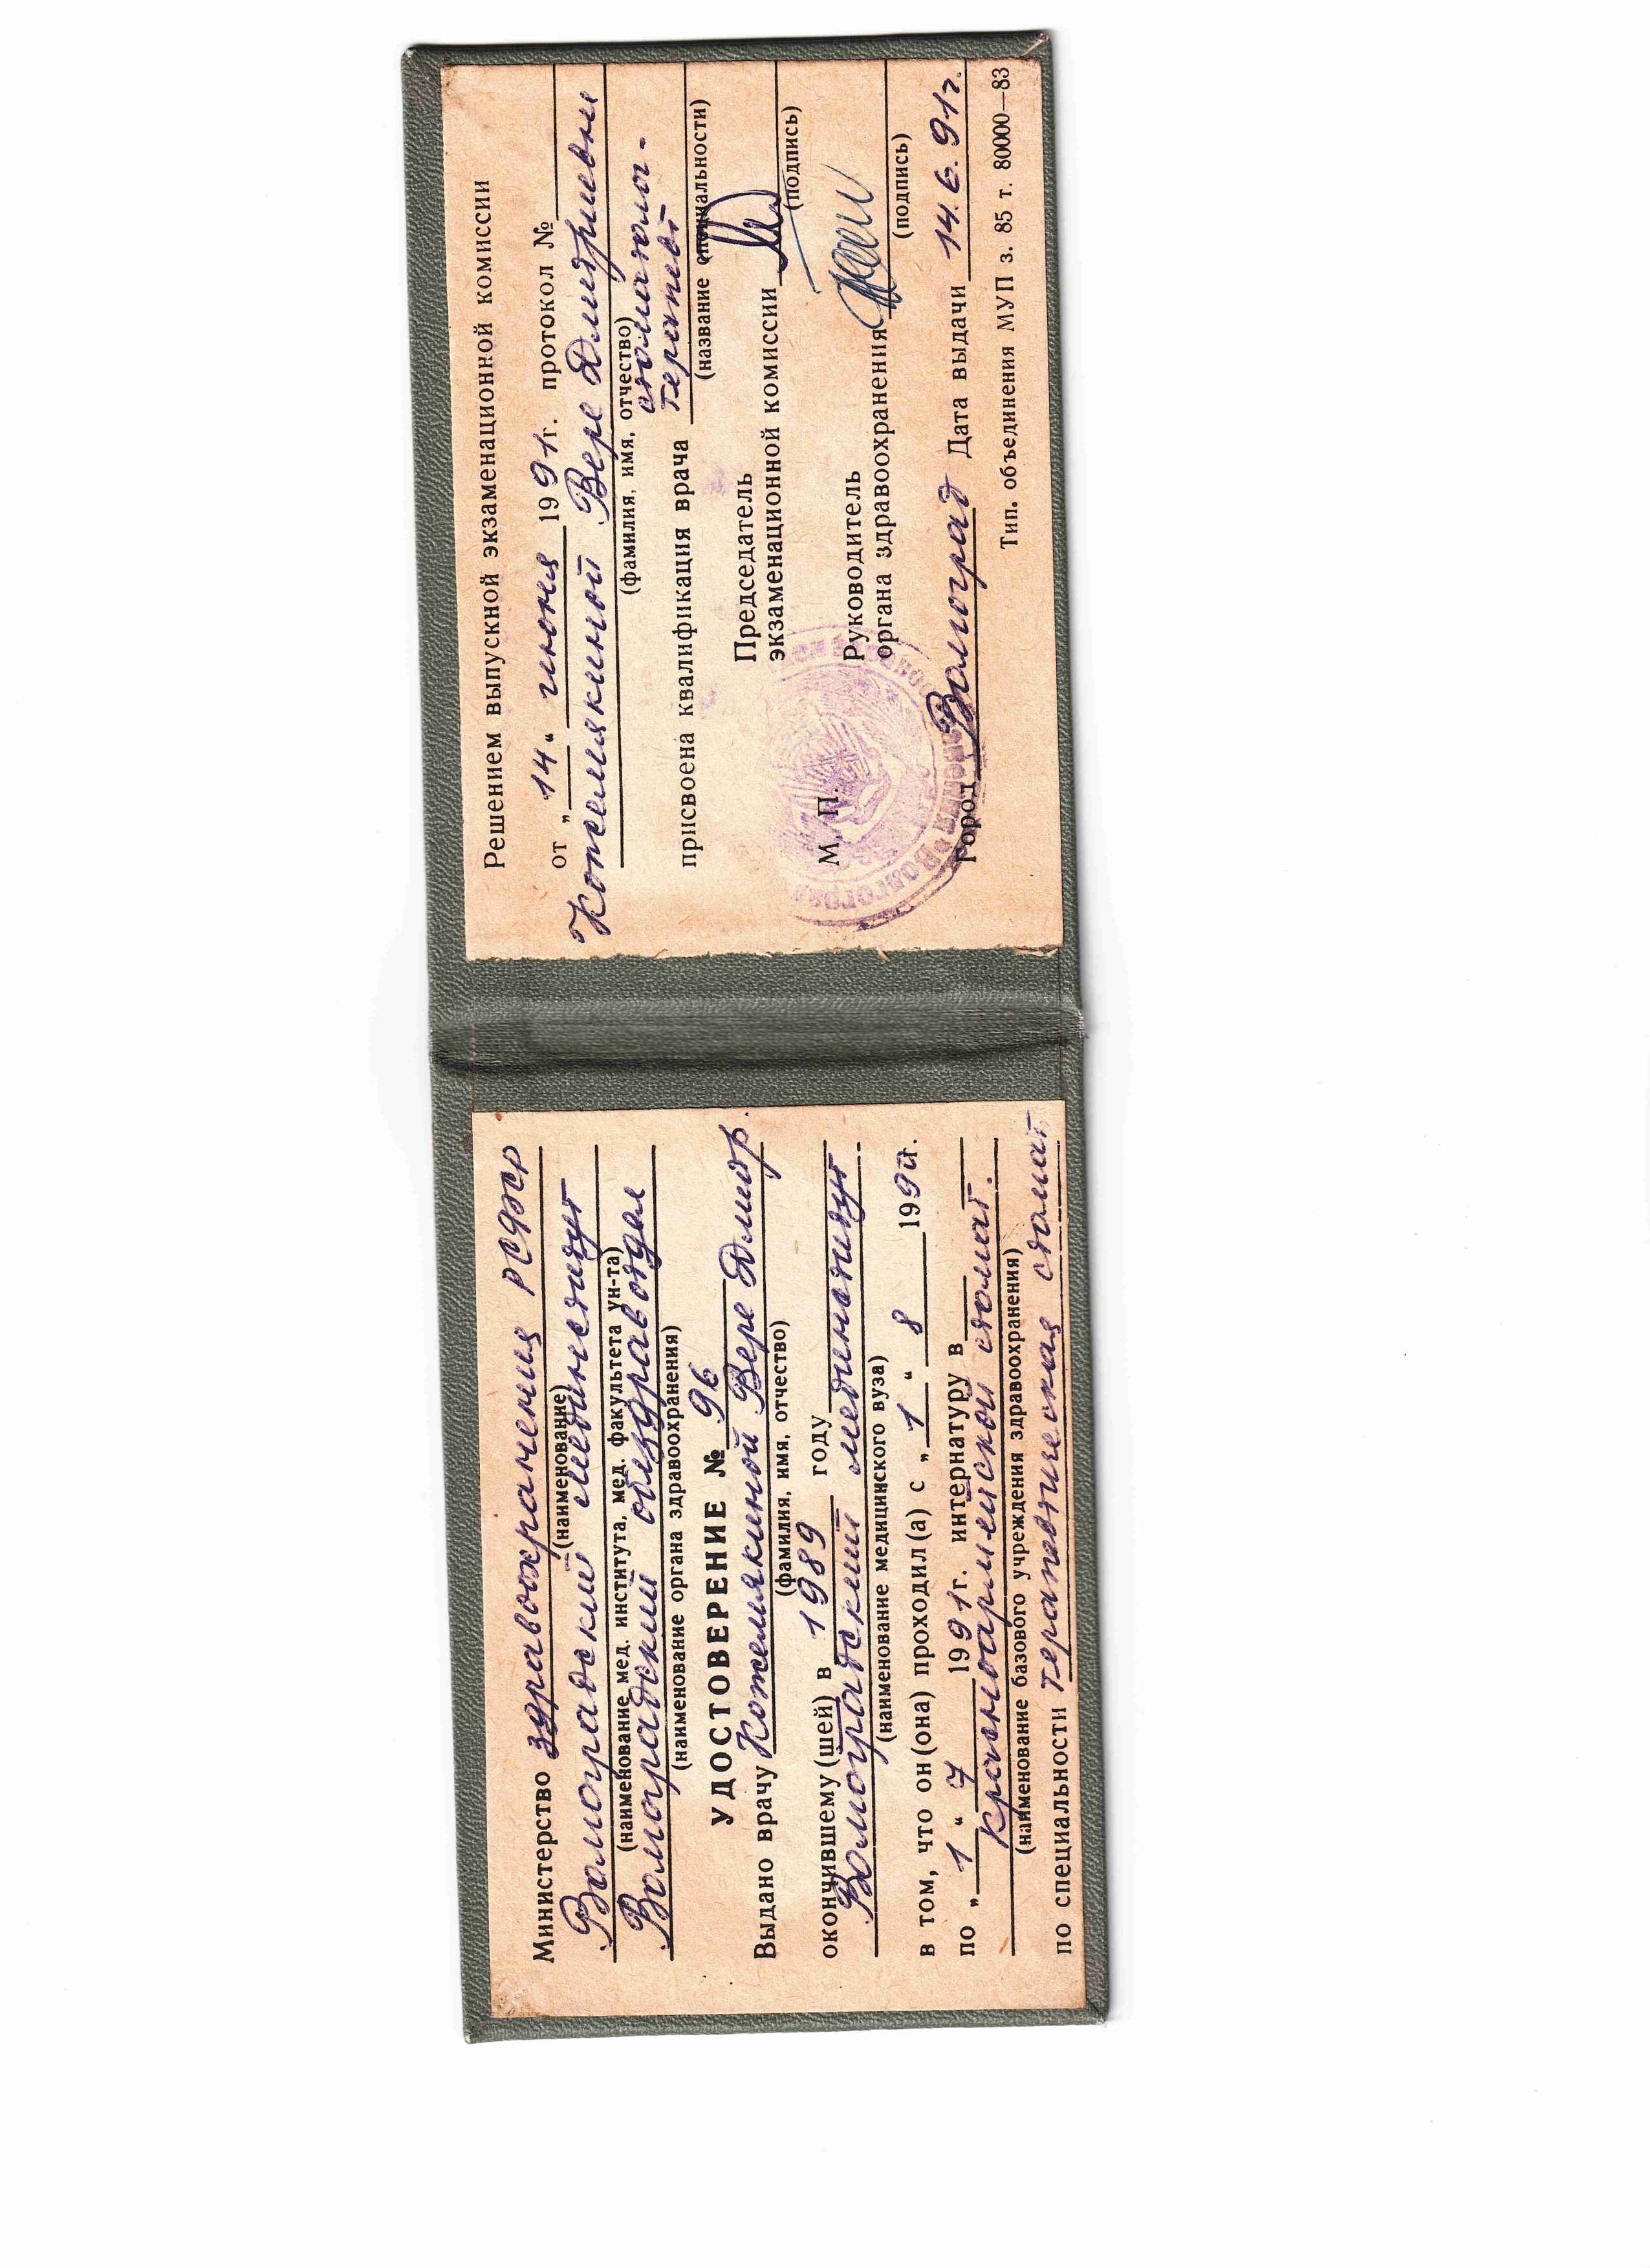 Министерство здравоохранения РСФСР
(наименование)
Волгоградский мединститут
(наименование мед. института, мед. факультета ун-та)
Волгоградский облздравотдел
(наименование органа здравоохранения)
УДОСТОВЕРЕНИЕ № 96
Выдано врачу Кожемякиной Вере Дмитр.
(фамилия, имя, отчество)
окончившему (шей) в 1989 году
Волгоградский мединститут
(наименование медицинского вуза)
в том, что он (она) проходил (а) с „1“ 8 199 г.
по „1“ 7 1991г. интернатуру в
Красноармейской стомат.
(наименование базового учреждения здравоохранения)
по специальности терапевтическая стомат
Решением выпускной экзаменационной комиссии
от „14“ июня 1991г. протокол №
Кожемякиной Вере Дмитриевне
(фамилия, имя, отчество)
стоматолог-
присвоена квалификация врача терапевт
(название специальности)
Председатель
экзаменационной комиссии
(подпись)
Руководитель
органа здравоохранения
(подпись)
М. П.
город Волгоград Дата выдачи 14.6.91г.
Тип. объединения МУП з. 85 т. 80000—83